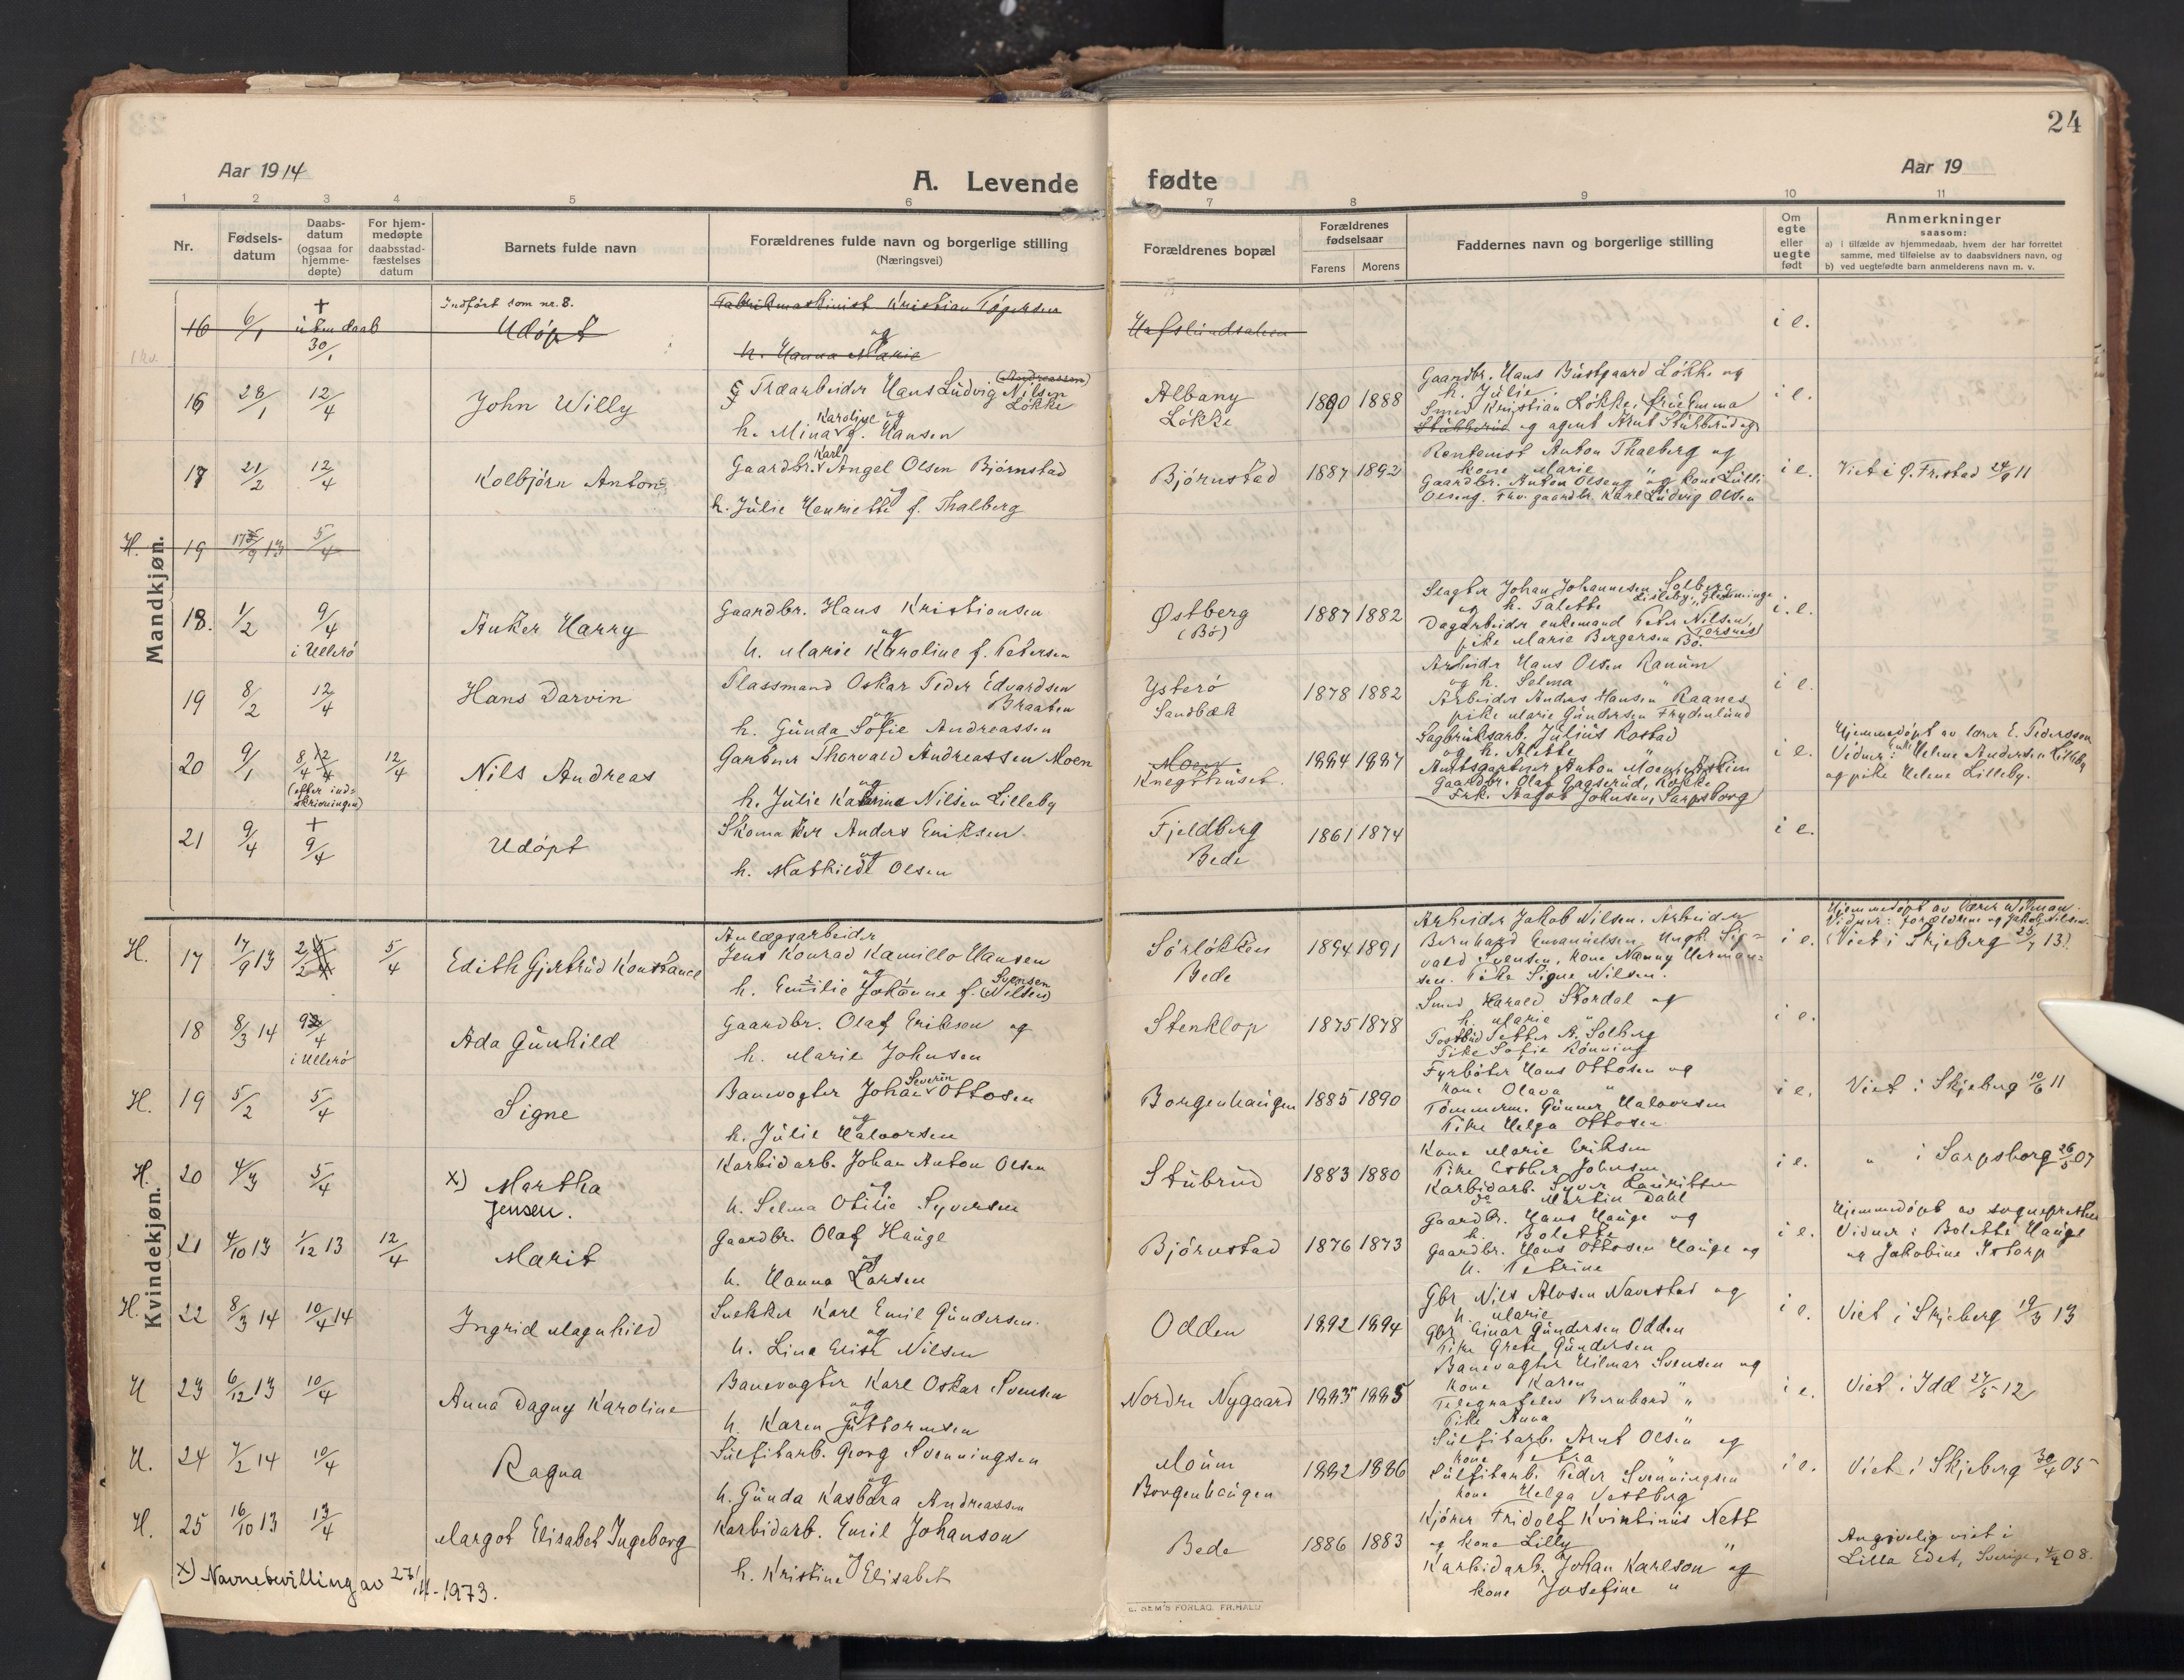 24
Aar 1914
A. Levende
fødte
Aar 19
1 2 3 4 5 6 7 8 9 10 11
Nr.
Fødsels-
datum
Daabs-
datum
(ogsaa for
hjemme-
døpte)
For hjem-
medøpte
daabsstad-
fæstelses
datum
Barnets fulde navn
Forældrenes fulde navn og borgerlige stilling
(Næringsvei)
Forældrenes bopæl
Forældrenes
fødselsaar
Farens Morens
Faddernes navn og borgerlige stilling
Om
egte
eller
uegte
født
Anmerkninger
saasom:
a) i tilfælde av hjemmedaab, hvem der har forrettet
samme, med tilføielse av to daabsvidners navn, og
b) ved uegtefødte barn anmelderens navn m. v.
Mandkjøn.
Indført som nr. 8.
16 6/1 + uten daab 30/1 Udøpt
og
h. Hanna Marie
Hafslundsalven
i e.
16 28/1 12/4 John Willy
Træarbeider Hans Ludvig Nilsen (Andreassen)
Løkke
h. Mina Karoline f. Hansen
og
Albany
Løkke
1890 1888
Gaardbr. Hans Bustgaard Løkke og
h. Julie.
Smed Kristian Løkke, frue Emma
Stubberud og agent Arnt Stubberud
i e.
17 21/2 12/4 Kolbjørn Anton
Gaardbr. Karl Angel Olsen Bjørnstad
og
h. Julie Henriette f. Thalberg
Bjørnstad
1887 1892
Rentenist Anton Thalberg og
kone Marie "
Gaardbr. Anton Olseng og kone Lilli
Olseng. Ekv. gaardbr. Karl Ludvig Olsen
i e.
Viet i Ø. Fr.stad 24/9 11
H. 19 17/9 13 5/4
18. 1/2 9/4
i Ullerø
Anker Harry
Gaardbr. Hans Kristiansen
og
h. Marie Karoline f. Petersen
Østberg
(Bø)
1887 1882
Slagter Johan Johannesen Solberg
og h. Talette Lisleby, Glemminge
Dagarbeider enkemand Peter Nilsen,
pike Marie Bergersen Bø. Torsnes
i. e.
19 8/2 12/4 Hans Darvin
Plassmand Oskar Peder Edvardsen
Braaten
og
h. Gunda Sofie Andreassen
Ysterø
Sandbæk
1878 1882
Arbeider Hans Olsen Ranum
og h. Selma "
Arbeider Anders Hansen Raanes
pike Marie Gundersen Frydenlund
i e.
20 9/1 8/4 12/4
(efter ind-
skrivningen)
12/4
Nils Andreas
Gartner Thorvald Andreassen Moen
og
h. Julie Katrine Nilsen Lilleby
Moen
Knegthuset.
1884 1887
Sagbruksarb. Julius Rostad
og h. Alette "
Amtsgartner Anton Moen, Askim
Gaardbr. Olaf Gaaserud, Rokke
Frk. Aagot Johnsen, Sarpsborg
i e.
Hjemmedøpt av lærer E. Pederssen
Vidner: Helene Andersen Lilleby
og pike Helene Lilleby.
21 9/4 + 9/4 Udøpt
Skomaker Anders Eriksen
og
h. Mathilde Olsen
Fjeldberg
Bede
1861 1874
i e.
Kvindekjøn.
H. 17 17/9 13 2/2 5/4
Edith Gjertrud Konstance
Anlægsarbeider
Jens Konrad Kamillo Hansen
og
h. Emilie Johanne f. Svensen (Nilsen)
Sørløkken
Bede
1894 1891
Arbeider Jakob Nilsen. Arbeider
Bernhard Emanuelsen, Ungk. Sig-
vald Svensen, kone Nanny Herman-
sen. Pike Signe Nilsen.
i e.
Hjemmedøpt av lærer Wikman.
Vidner: forældrene og Jakob Nilsen.
(Viet i Skjeberg 25/7 13)
18 8/3 14 9/4
i Ullerø
Ada Gunhild
Gaardbr. Olaf Eriksen og
h. Marie Johnsen
Stenklop
1875 1878
Smed Harald Stordal og
h. Marie "
Postbud Petter A. Solberg
Pike Sofie Rønning
i e.
H. 19 5/2 5/4 Signe
Banevogter Johan Severin Ottosen
og
h. Julie Halvorsen
Borgenhaugen
1885 1890
Fyrbøter Hans Ottosen og
kone Olava "
Tømmerm. Gunner Halvorsen
Pike Helga Ottosen
i e.
Viet i Skjeberg 10/6 11
H. 20 4/3 5/4 x) Martha
Jensen.
Karbidarb. Johan Anton Olsen
og
h. Selma Otilie Syversen
Stubrud
1883 1880
Kone Marie Eriksen
Pike Esther Johnsen
Karbidarb. Syver Lauritsen
do Martin Dahl
i e.
" i Sarpsborg 26/5 07
21 4/10 13 1/12 13 12/4 Marit
Gaardbr. Olaf Hauge
og
h. Hanna Larsen
Bjørnstad
1876 1873
Gaardbr. Hans Hauge og
h. Bolette
Gaardbr. Hans Ottosen Hauge og
h. Petrine
i e.
Hjemmedøpt av sogneprsten
Vidner: Bolette Hauge
og Jakobine Istorp
H. 22 8/3 14 10/4 14 Ingrid Magnhild
Snekker Karl Emil Gundersen
og
h. Lina Elise Nilsen
Odden
1892 1894
Gbr Nils Alvsen Navestad og
h. Marie
Gbr Einar Gundersen Odden
Pike Grete Gundersen
i e.
Viet i Skjeberg 19/3 13
H 23 6/12 13 10/4 Anna Dagny Karoline
Banevogter Karl Oskar Svensen
og
h. Karen Guttormsen
Nordre Nygaard
1885 1885
Banevogter Hilmar Svensen og
kone Karen "
Telegrafelev Bernhard "
Pike Anna "
i e.
Viet i Idd 27/5 12
H. 24 7/2 14 10/4 Ragna
Sulfitarb. Georg Svenningsen
og
h. Gunda Kasbara Andreassen
Moum
Borgenhaugen
1882 1886
Sulfitarb. Arnt Olsen og
kone Petra "
Sulfitarb. Peder Svenningsen
kone Helga Vestberg
i e.
Viet i Skjeberg 30/4 05
H. 25 16/10 13 13/4 Margot Elisabet Ingeborg
Karbidarb. Emil Johanson
og
h. Kristine Elisabet
Bede
1886 1883
Kjører Fridolf Kvintinus Nett
og kone Lilly "
Karbidarb. Johan Karlson og
kone Josefine "
Angivelig viet i
Lilla Edet, Sverige, 4/4 08.
x) Navnebevilling av 27/11-1973.
E. SEM'S FORLAG, FR.HALD